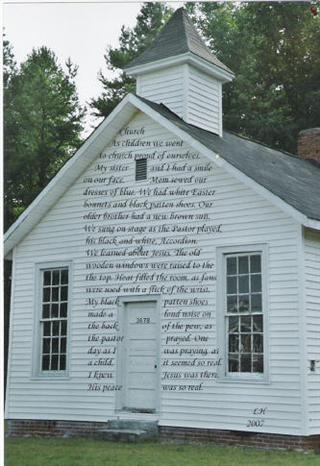 Church
As children we went
to church proud of ourselves.
My sister and I had a smile
on our face. Mom sewed our
dresses of blue. We had white Easter
bonnets and black patten shoes. Our
older brother had a new brown suit.
We sang on stage as the Pastor played,
his black and white, Accordion.
We learned about Jesus. The old
wooden windows were raised to the
the top. Heat filled the room, as fans
were used with a flick of the wrist.
My black patten shoes
made a loud noise on
the back of the pew, as
the pastor prayed. One
day as I was praying, as
a child, it seemed so real.
I knew Jesus was there.
His peace was so real.
3678
LH
2007